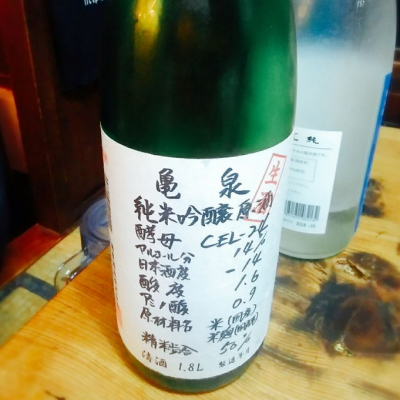 亀泉
生酒
純米吟醸原酒
酵母 CEL-24
アルコール分 14%
日本酒度 -14
酸度 1.6
アミノ酸 0.9
原材料名 米(国産)
米麹(国産米)
精米歩合 50%
清酒 1.8L 製造年月